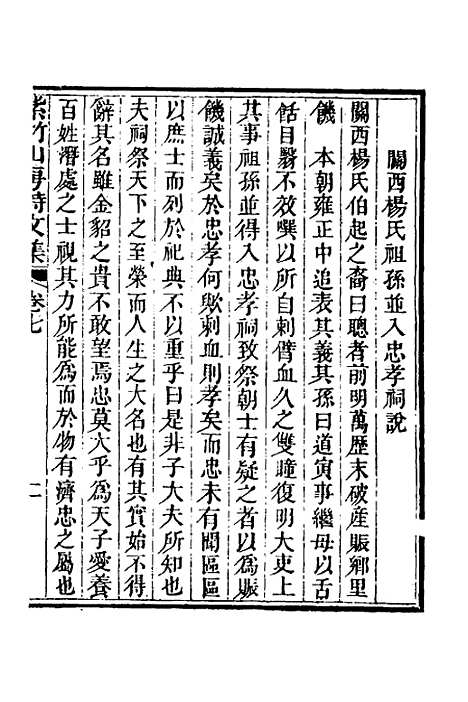 關西楊氏祖孫並入忠孝祠說
關西楊氏伯起之裔曰聰者前明萬歷末破產賑鄉里
饑　本朝雍正中追表其義其孫曰道寅事繼母以舌
餂目翳不效㗱以所自刺臂血久之雙瞳復明大吏上
其事祖孫並得入忠孝祠致祭朝士有疑之者以為賑
饑誠義矣於忠孝何歟刺血則孝矣而忠未有聞區區
以庶士而列於祀典不以重乎曰是非子大夫所知也
夫祠祭天下之至榮而人生之大名也有其實始不得
辭其名雖金貂之貴不敢望焉忠莫大乎為天子愛養
百姓潛處之士視其力所能為而於物有濟忠之屬也
紫竹山房詩文集　卷七　二